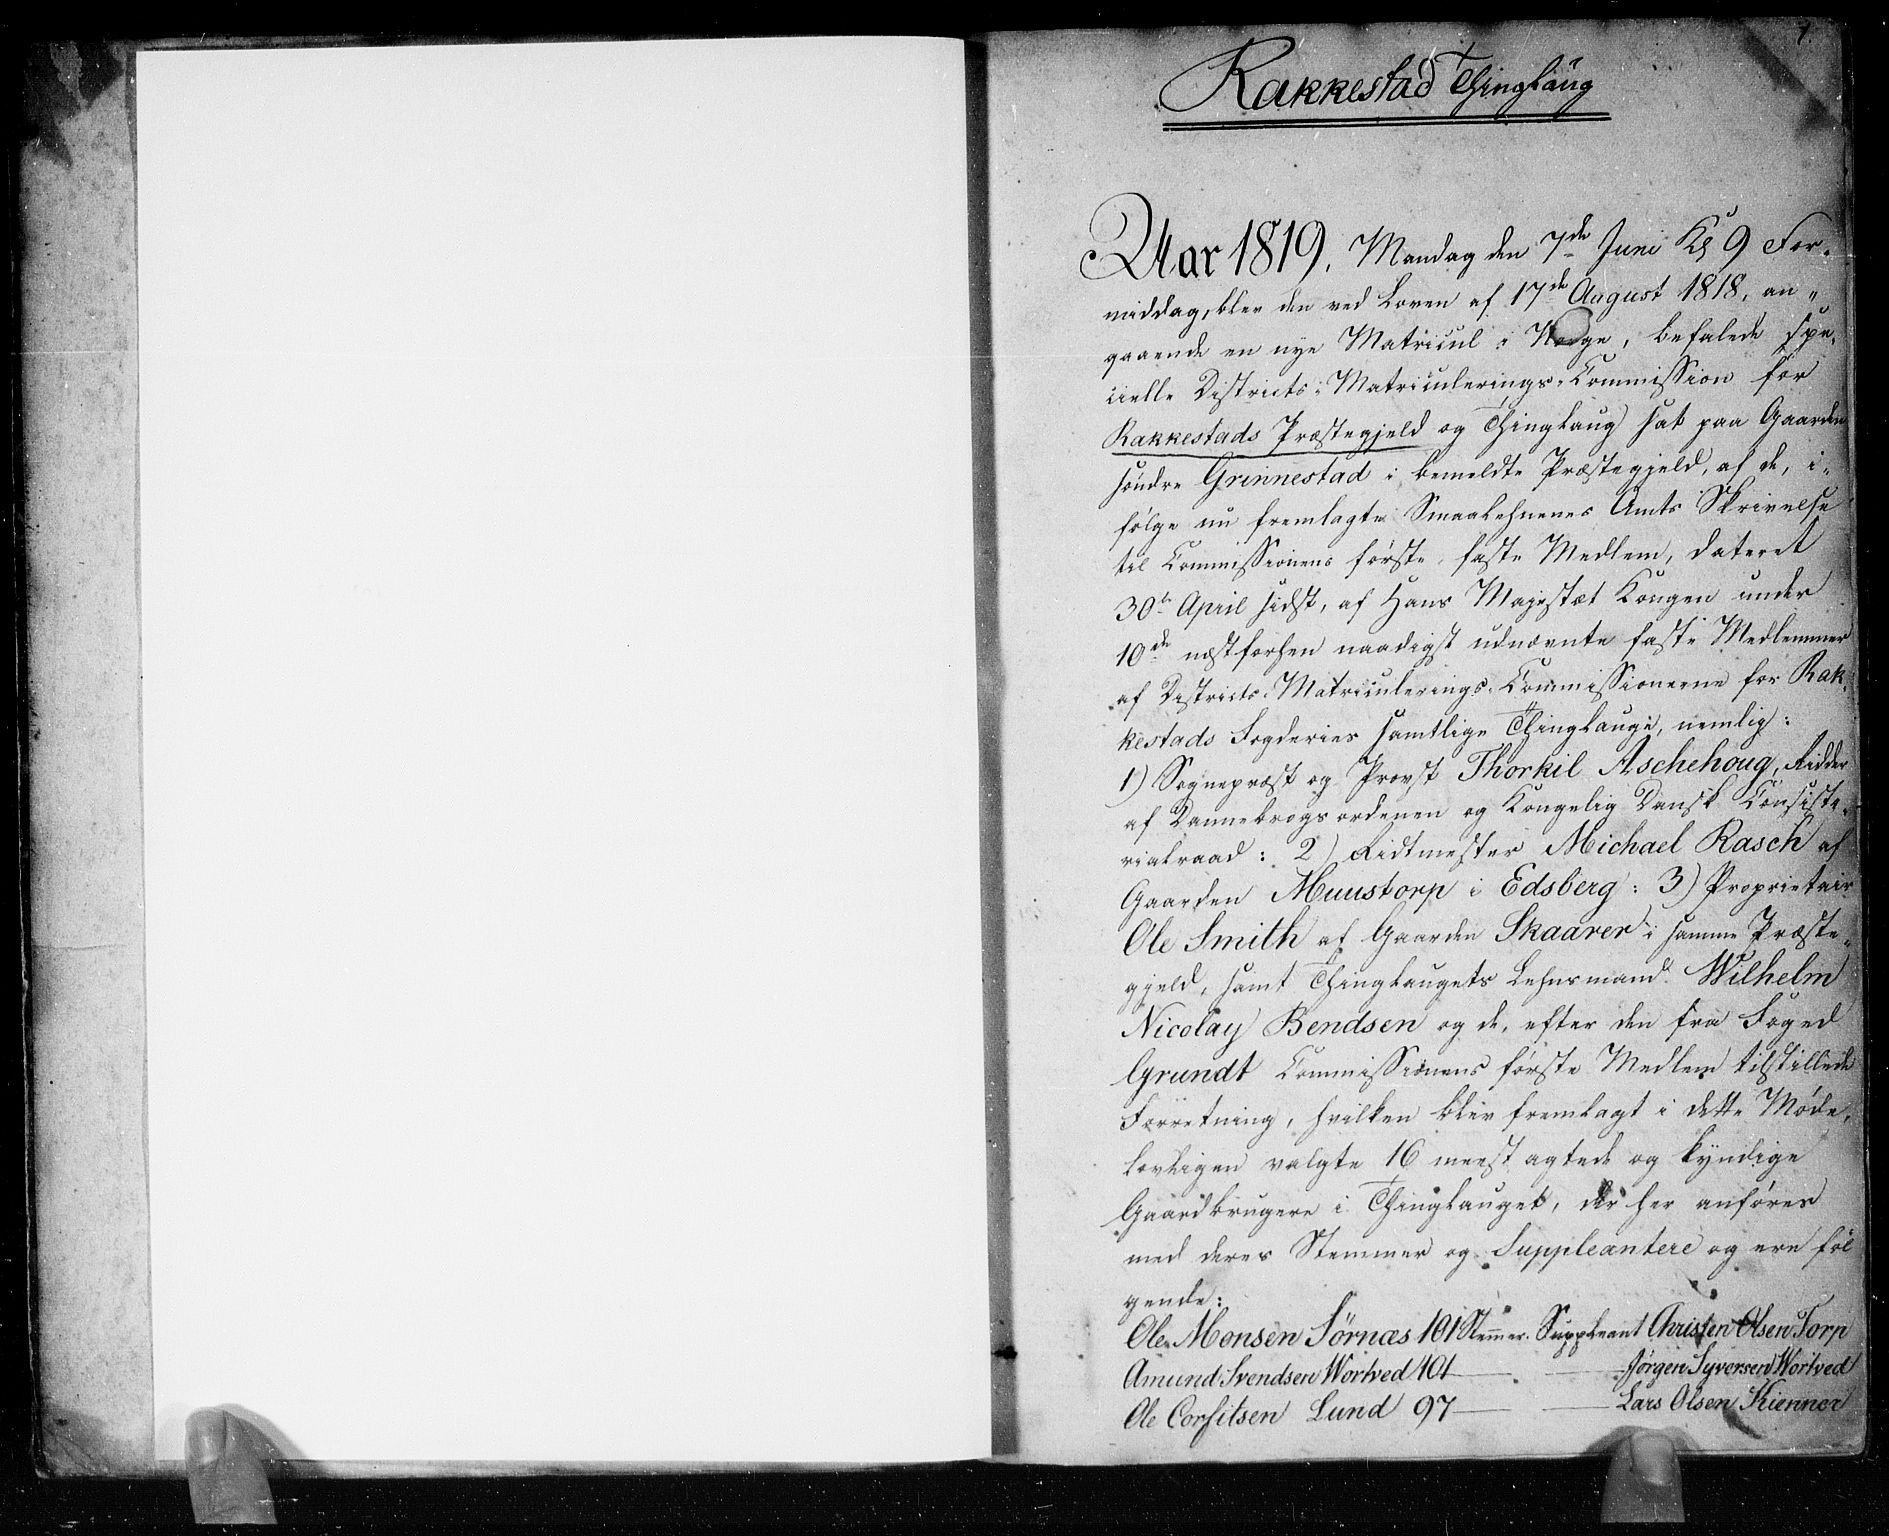 1.
Rakkestad Thinglaug
Aar 1819. Mandag den 7de Juni Kl 9 For-
middag, blev den ved Loven af 17de August 1818, an-
gaaende en nye Matricul i Norge, befalede spe-
cielle Districts-Matriculerings-Commission for
Rakkestads Præstegjeld og Thinglaug sat paa Gaarden
søndre Grinnestad i bemeldte Præstegjeld, af de, i-
følge nu fremlagte Smaalehnenes Amts Skrivelse
til Commissionens første faste Medlem, dateret
30te April sidst, af Hans Majestæt Kongen under
10de næstforhen naadigst udnævnte faste Medlemmer
af Districts-Matriculerings-Commissionerne for Rak-
kestads Fogderies samtlige Thinglauge, nemlig:
1) Sognepræst og Provst Thorkil Aschehoug, Ridder
af Dannebrogsordenen og Kongelig Dansk Consisto-
rialraad: 2) Ridtmester Michael Rasch af
Gaarden Muustorp i Edsberg: 3) Proprietair
Ole Smith af Gaarden Skaarer i samme Præste-
gjeld, samt Thinglaugets Lehnsmand Wilhelm
Nicolay Bendsen og de, efter den fra Foged
Grundt Commissionens første Medlem tilstillede
Forretning, hvilken blev fremlagt i dette Møde,
lovligen valgte 16 meest agtede og kyndige
Gaardbrugere i Thinglauget, der her anføres
med deres Stemmer og Suppleantere og ere føl
gende:
Ole Monsen Sørnæs 101 Stemmer. Suppleant Christen Olsen Torp
Amund Svendsen Wortved 101 — — Jørgen Syversen Wortved
Ole Corfitsen Lund 97 — — Lars Olsen Kienner